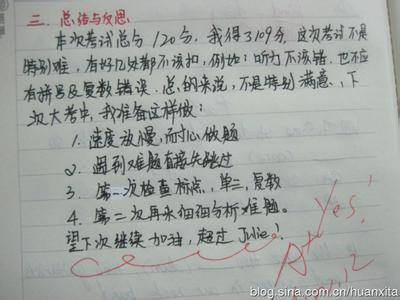 三、总结与反思
本次考试总分120分，我得了109分，这次考试不是
特别难，有好几处都不该扣，例如：听力不该错，也不应
有拼写及复数错误，总的来说，不是特别满意，下
次大考中，我准备这样做：
1. 速度放慢，耐心做题
2. 遇到难题直接先跳过
3. 第二次检查标点，单三，复数
4. 第二次再来细细分析难题。
望下次继续加油，超过Julie！
Yes!
A+
blog.sina.com.cn/huanxita